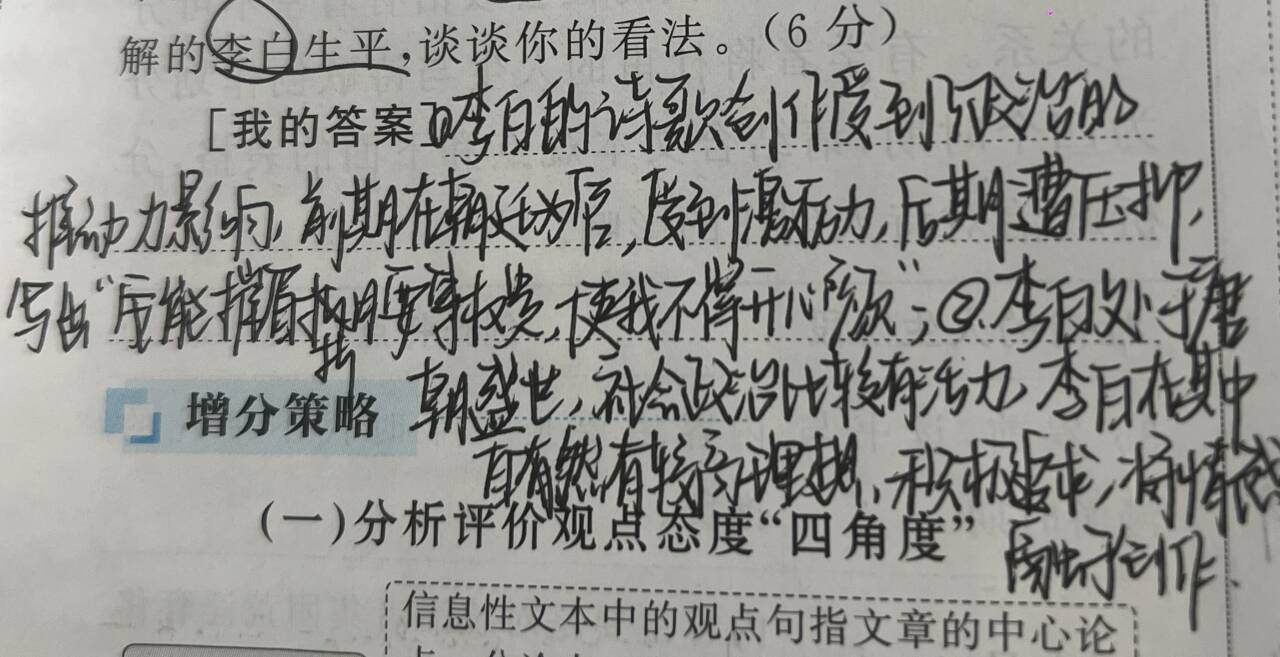 解的李白生平,谈谈你的看法。(6分)
[我的答案]①李白的诗歌创作受到政治的
推动力影响,前期在朝廷为官,受到激励,后期遭压抑,
写出“安能摧眉折腰事权贵,使我不得开心颜”;②.李白处于唐
折
朝盛世,社会政治比较有活力,李白在其中
增分策略
自然有较高理想,积极追求,将情感
(一)分析评价观点态度“四角度”
融于创作.
信息性文本中的观点句指文章的中心论